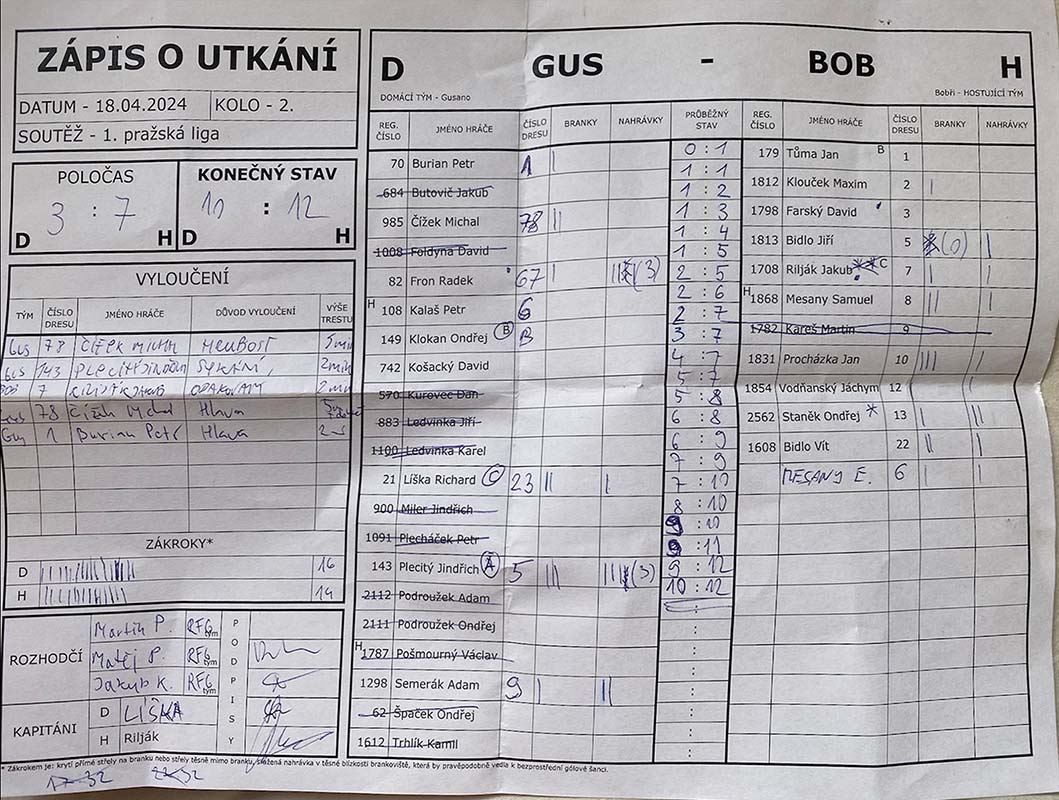 ZÁPIS O UTKÁNÍ
DATUM - 18.04.2024 KOLO - 2.
SOUTĚŽ - 1. pražská liga
POLOČAS
3 : 7
D H
KONEČNÝ STAV
10 : 12
D H
VYLOUČENÍ
TÝM ČÍSLO DRESU JMÉNO HRÁČE DŮVOD VYLOUČENÍ VÝŠE TRESTU
GUS 78
GUS 143 2min
7
78 Čížek Michal Hlava
Gus 1 Burian Petr Hlava
ZÁKROKY*
D 16
H 14
ROZHODČÍ
Martin P. RFG tým
Matěj P. RFG tým
Jakub K. RFG tým
PODPISY
KAPITÁNI
D LÍŠKA
H Rilják
D GUS - BOB H
DOMÁCÍ TÝM - Gusano Bobři - HOSTUJÍCÍ TÝM
REG. ČÍSLO JMÉNO HRÁČE ČÍSLO DRESU BRANKY NAHRÁVKY
70 Burian Petr 1
684 Butovič Jakub
985 Čížek Michal 78
1008 Foldyna David
82 Fron Radek 67 (3)
H 108 Kalaš Petr 6
149 Klokan Ondřej B B
742 Košacký David
570 Kurovec Dan
883 Ledvinka Jiří
1100 Ledvinka Karel
21 Líška Richard C 23
900 Miler Jindřich
1091 Plecháček Petr
143 Plecitý Jindřich A 5 (3)
2112 Podroužek Adam
2111 Podroužek Ondřej
H 1787 Pošmourný Václav
1298 Semerák Adam 9
62 Špaček Ondřej
1612 Trhlík Kamil
PRŮBĚŽNÝ STAV
0 : 1
1 : 1
1 : 2
1 : 3
1 : 4
1 : 5
2 : 5
2 : 6
2 : 7
3 : 7
4 : 7
5 : 7
5 : 8
6 : 8
6 : 9
7 : 9
7 : 10
8 : 10
9 : 10
9 : 11
9 : 12
10 : 12
REG. ČÍSLO JMÉNO HRÁČE ČÍSLO DRESU BRANKY NAHRÁVKY
179 Tůma Jan B 1
1812 Klouček Maxim 2
1798 Farský David 3
1813 Bidlo Jiří 5 (0)
1708 Rilják Jakub C 7
H 1868 Mesany Samuel 8
1782 Kareš Martin 9
1831 Procházka Jan 10
1854 Vodňanský Jáchym 12
2562 Staněk Ondřej * 13
1608 Bidlo Vít 22
MESANY E. 6
* Zákrokem je: krytí přímé střely na branku nebo střely těsně mimo branku, sražená nahrávka v těsné blízkosti brankoviště, která by pravěpodobně vedla k bezprostřední gólové šanci.